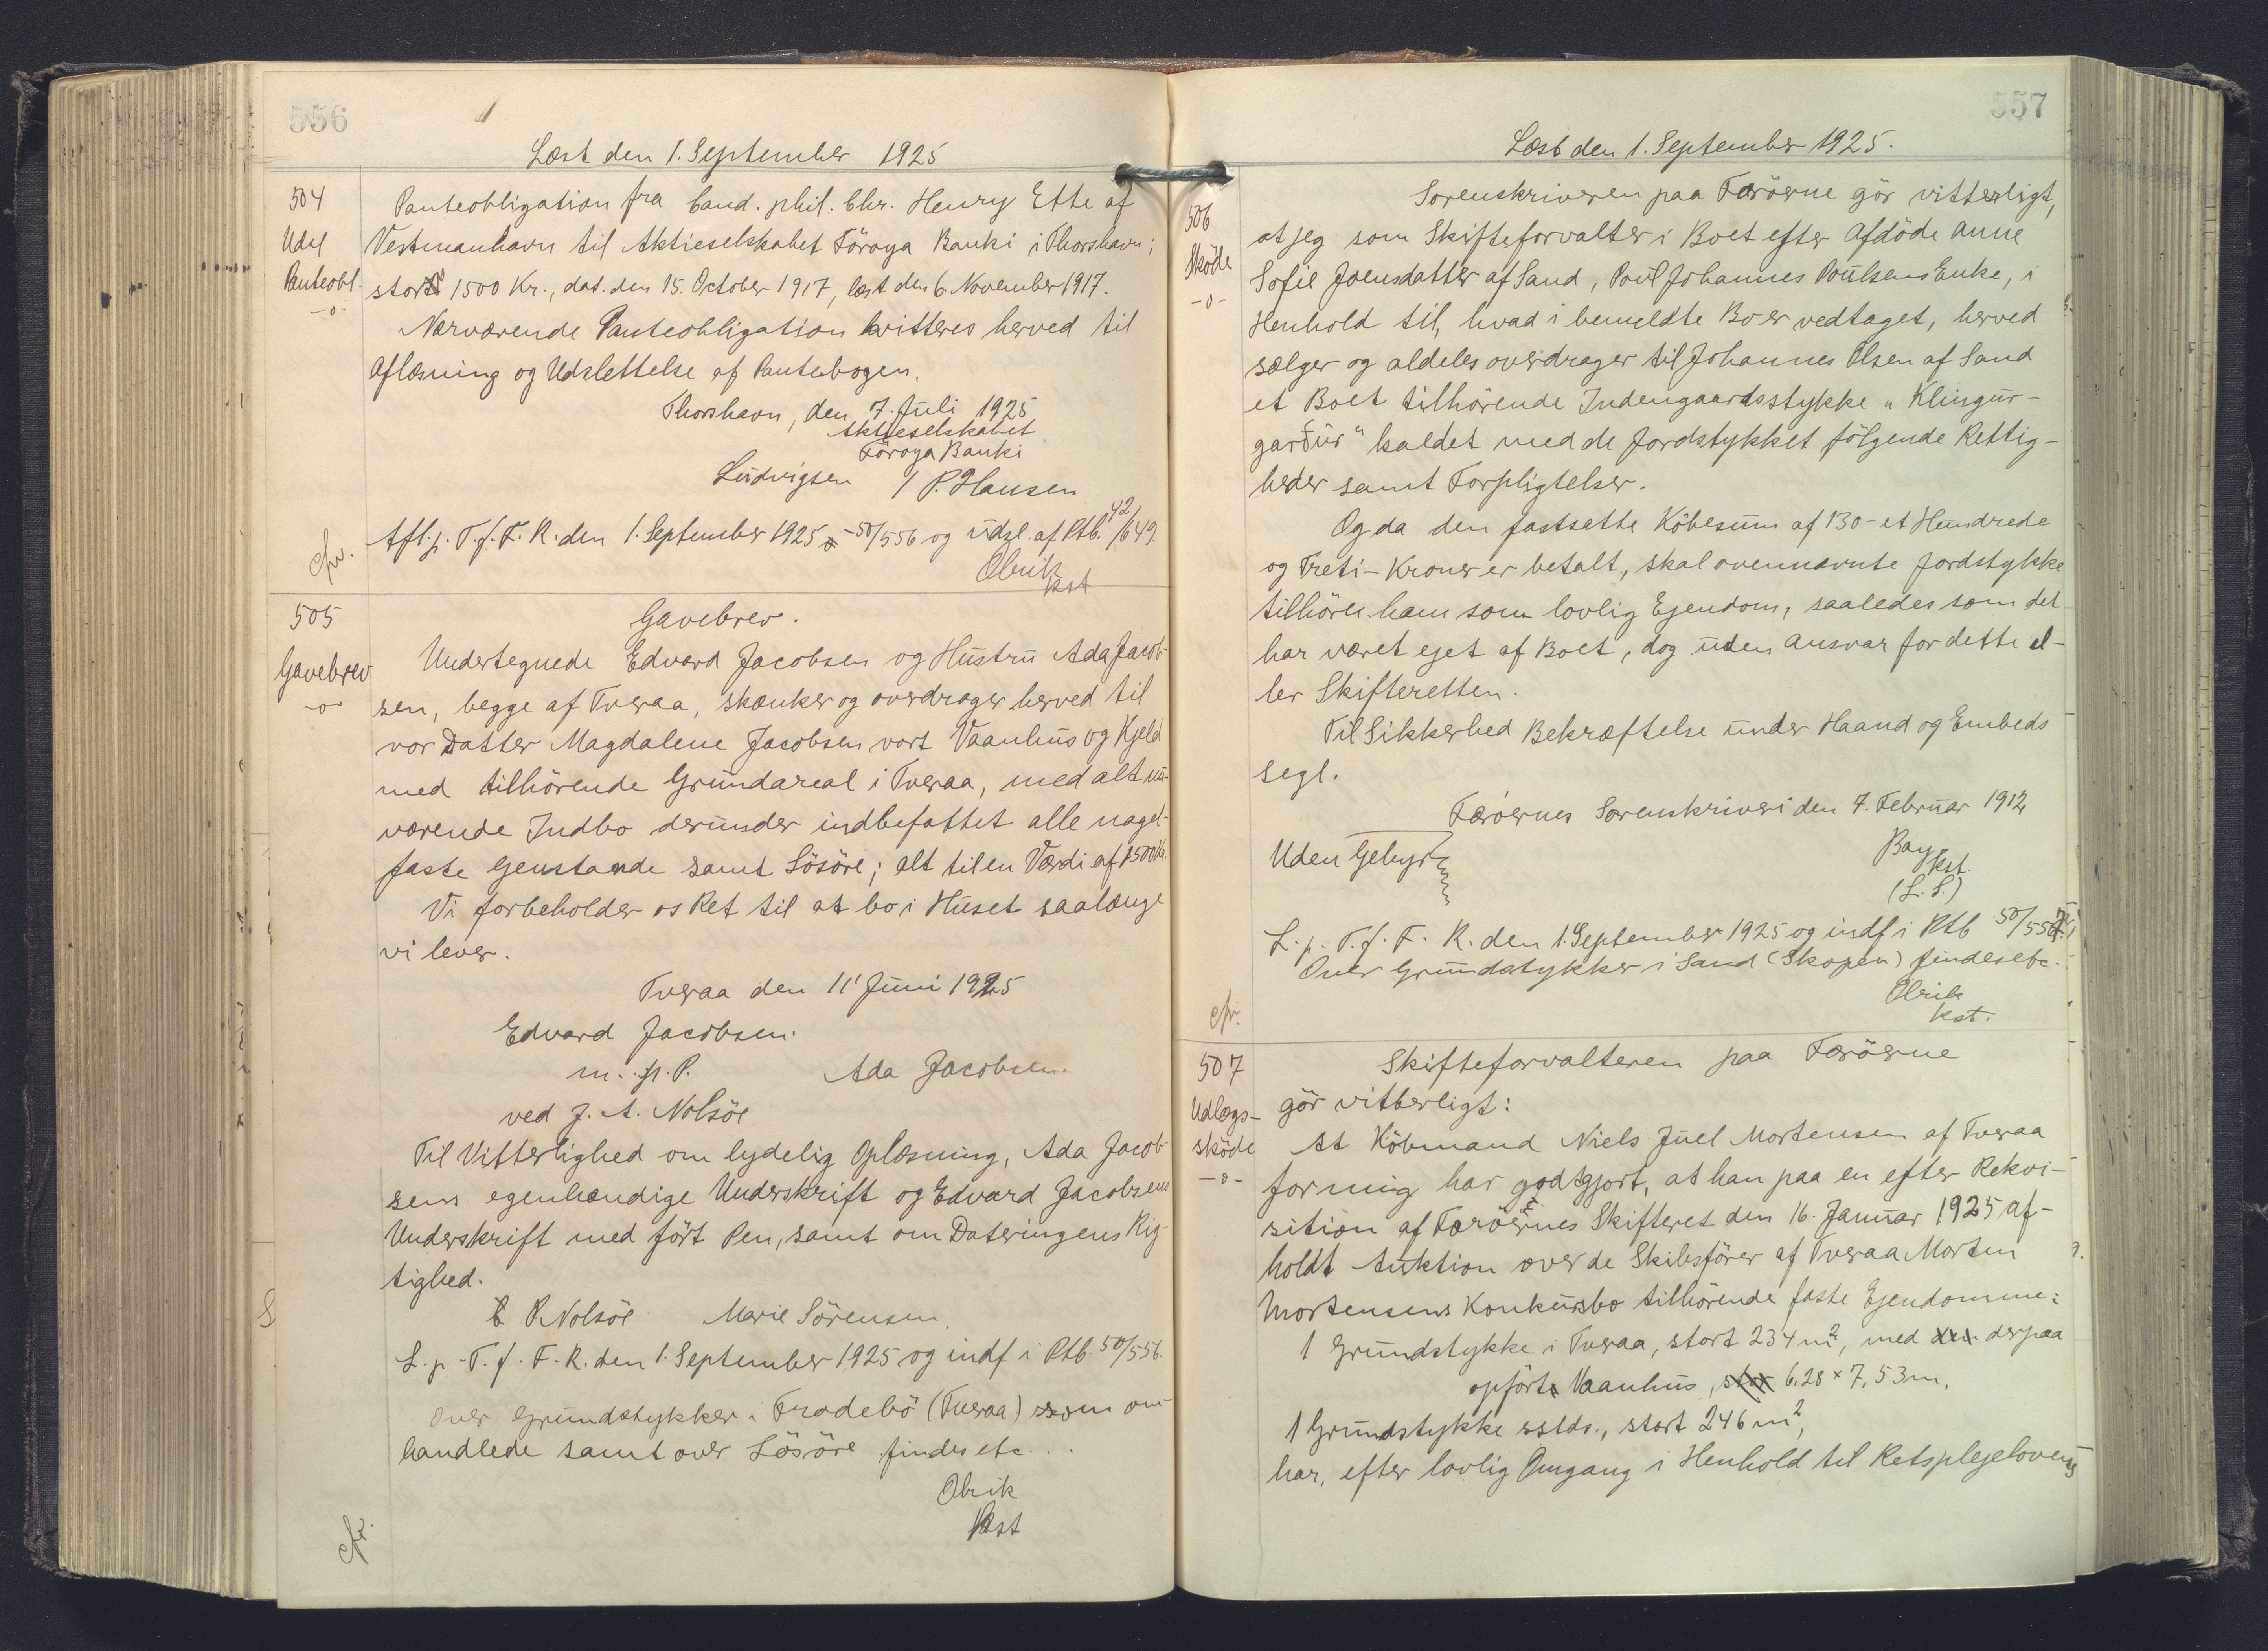 556
Læst den 1. September 1925
504
Udsl
Panteobl.
-o-
Panteobligation fra Cand. phil. Chr. Henry Ette af
Vestmanhavn til Aktieselskabet Föroya Banki i Thorshavn;
stor 1500 Kr., dat. den 15. October 1917, læst den 6. November 1917.
Nærværende Panteobligation kvitteres herved til
Aflæsning og Udslettelse af Pantebogen.
Thorshavn, den 7. Juli 1925
Aktieselskabet
Föroya Banki
Ludvigsen / P. Hansen
Afl. p. T. f. F. R. den 1. September 1925 - 50/556 og udsl. af Ptb. 42/649.
Olrik
kst
cfr.
505
Gavebrev
-o-
Gavebrev.
Undertegnede Edvard Jacobsen og Hustru Ada Jacob-
sen, begge af Tveraa, skænker og overdrager herved til
vor Datter Magdalene Jacobsen vort Vaanhus og Kjeld
med tilhörende Grundareal i Tveraa, med alt nu-
værende Indbo derunder indbefattet alle nagel-
faste Genstande samt Lösöre; alt til en Værdi af 1500 Kr.
Vi forbeholder os Ret til at bo i Huset saalænge
vi lever.
Tveraa den 11' Juni 1925
Edvard Jacobsen.
m. f. P. Ada Jacobsen.
ved J. A. Nolsöe
Til Vitterlighed om lydelig Oplæsning, Ada Jacob-
sens egenhændige Underskrift og Edvard Jacobsens
Underskrift med fört Pen, samt om Dateringens Rig-
tighed.
P. Nolsöe Marie Sörensen.
L. p. T. f. F. R. den 1. September 1925 og indf i Ptb. 50/556.
Over Grundstykker i Frodebö (Tveraa) som om-
handlede samt over Lösöre findes etc...
Olrik
kst
cfr.
557
Læst den 1. September 1925.
506
Sköde
-o-
Sorenskriveren paa Færöerne gör vitterligt,
at jeg som Skifteforvalter i Boet efter afdöde Anne
Sofie Joensdatter af Sand, Poul Johannes Poulsens Enke, i
Henhold til, hvad i bemeldte Bo er vedtaget, herved
sælger og aldeles overdrager til Johannes Olsen af Sand
et Boet tilhörende Indengaardsstykke "Klingur-
garður" kaldet med de Jordstykket fölgende Rettig-
heder samt Forpligtelser.
Og da den fastsatte Köbesum af 130 - et Hundrede
og Treti - Kroner er betalt, skal ovennævnte Jordstykke
tilhöre ham som lovlig Ejendom, saaledes som det
har været ejet af Boet, dog uden Ansvar for dette el-
ler Skifteretten.
Til Sikkerhed Bekræftelse under Haand og Embeds
segl.
Færöernes Sorenskriveri den 7. Februar 1912
Uden Gebyr
Bay
kst.
(L. S.)
L. p. T. f. F. R. den 1. September 1925 og indf i Ptb 50/557.
Over Grundstykker i Sand (Skopen) findes etc.
Olrik
kst.
cfr.
507
Udlægs-
sköde
-o-
Skifteforvalteren paa Færöerne
gör vitterligt:
At Köbmand Niels Juel Mortensen af Tveraa
for mig har godtgjort, at han paa en efter Rekvi-
sition af Færöernes Skifteret den 16. Januar 1925 af-
holdt Auktion over de Skibsförer af Tveraa Morten
Mortensens Konkursbo tilhörende faste Ejendomme:
1 Grundstykke i Tveraa, stort 234 m², med derpaa
opfört Vaanhus, 6,28 × 7,53 m,
1 Grundstykke sstds., stort 246 m²,
har, efter lovlig Omgang i Henhold til Retsplejelovens